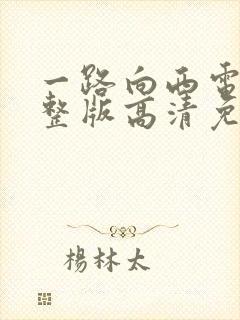 一路向西电
整版高清免
楊林太